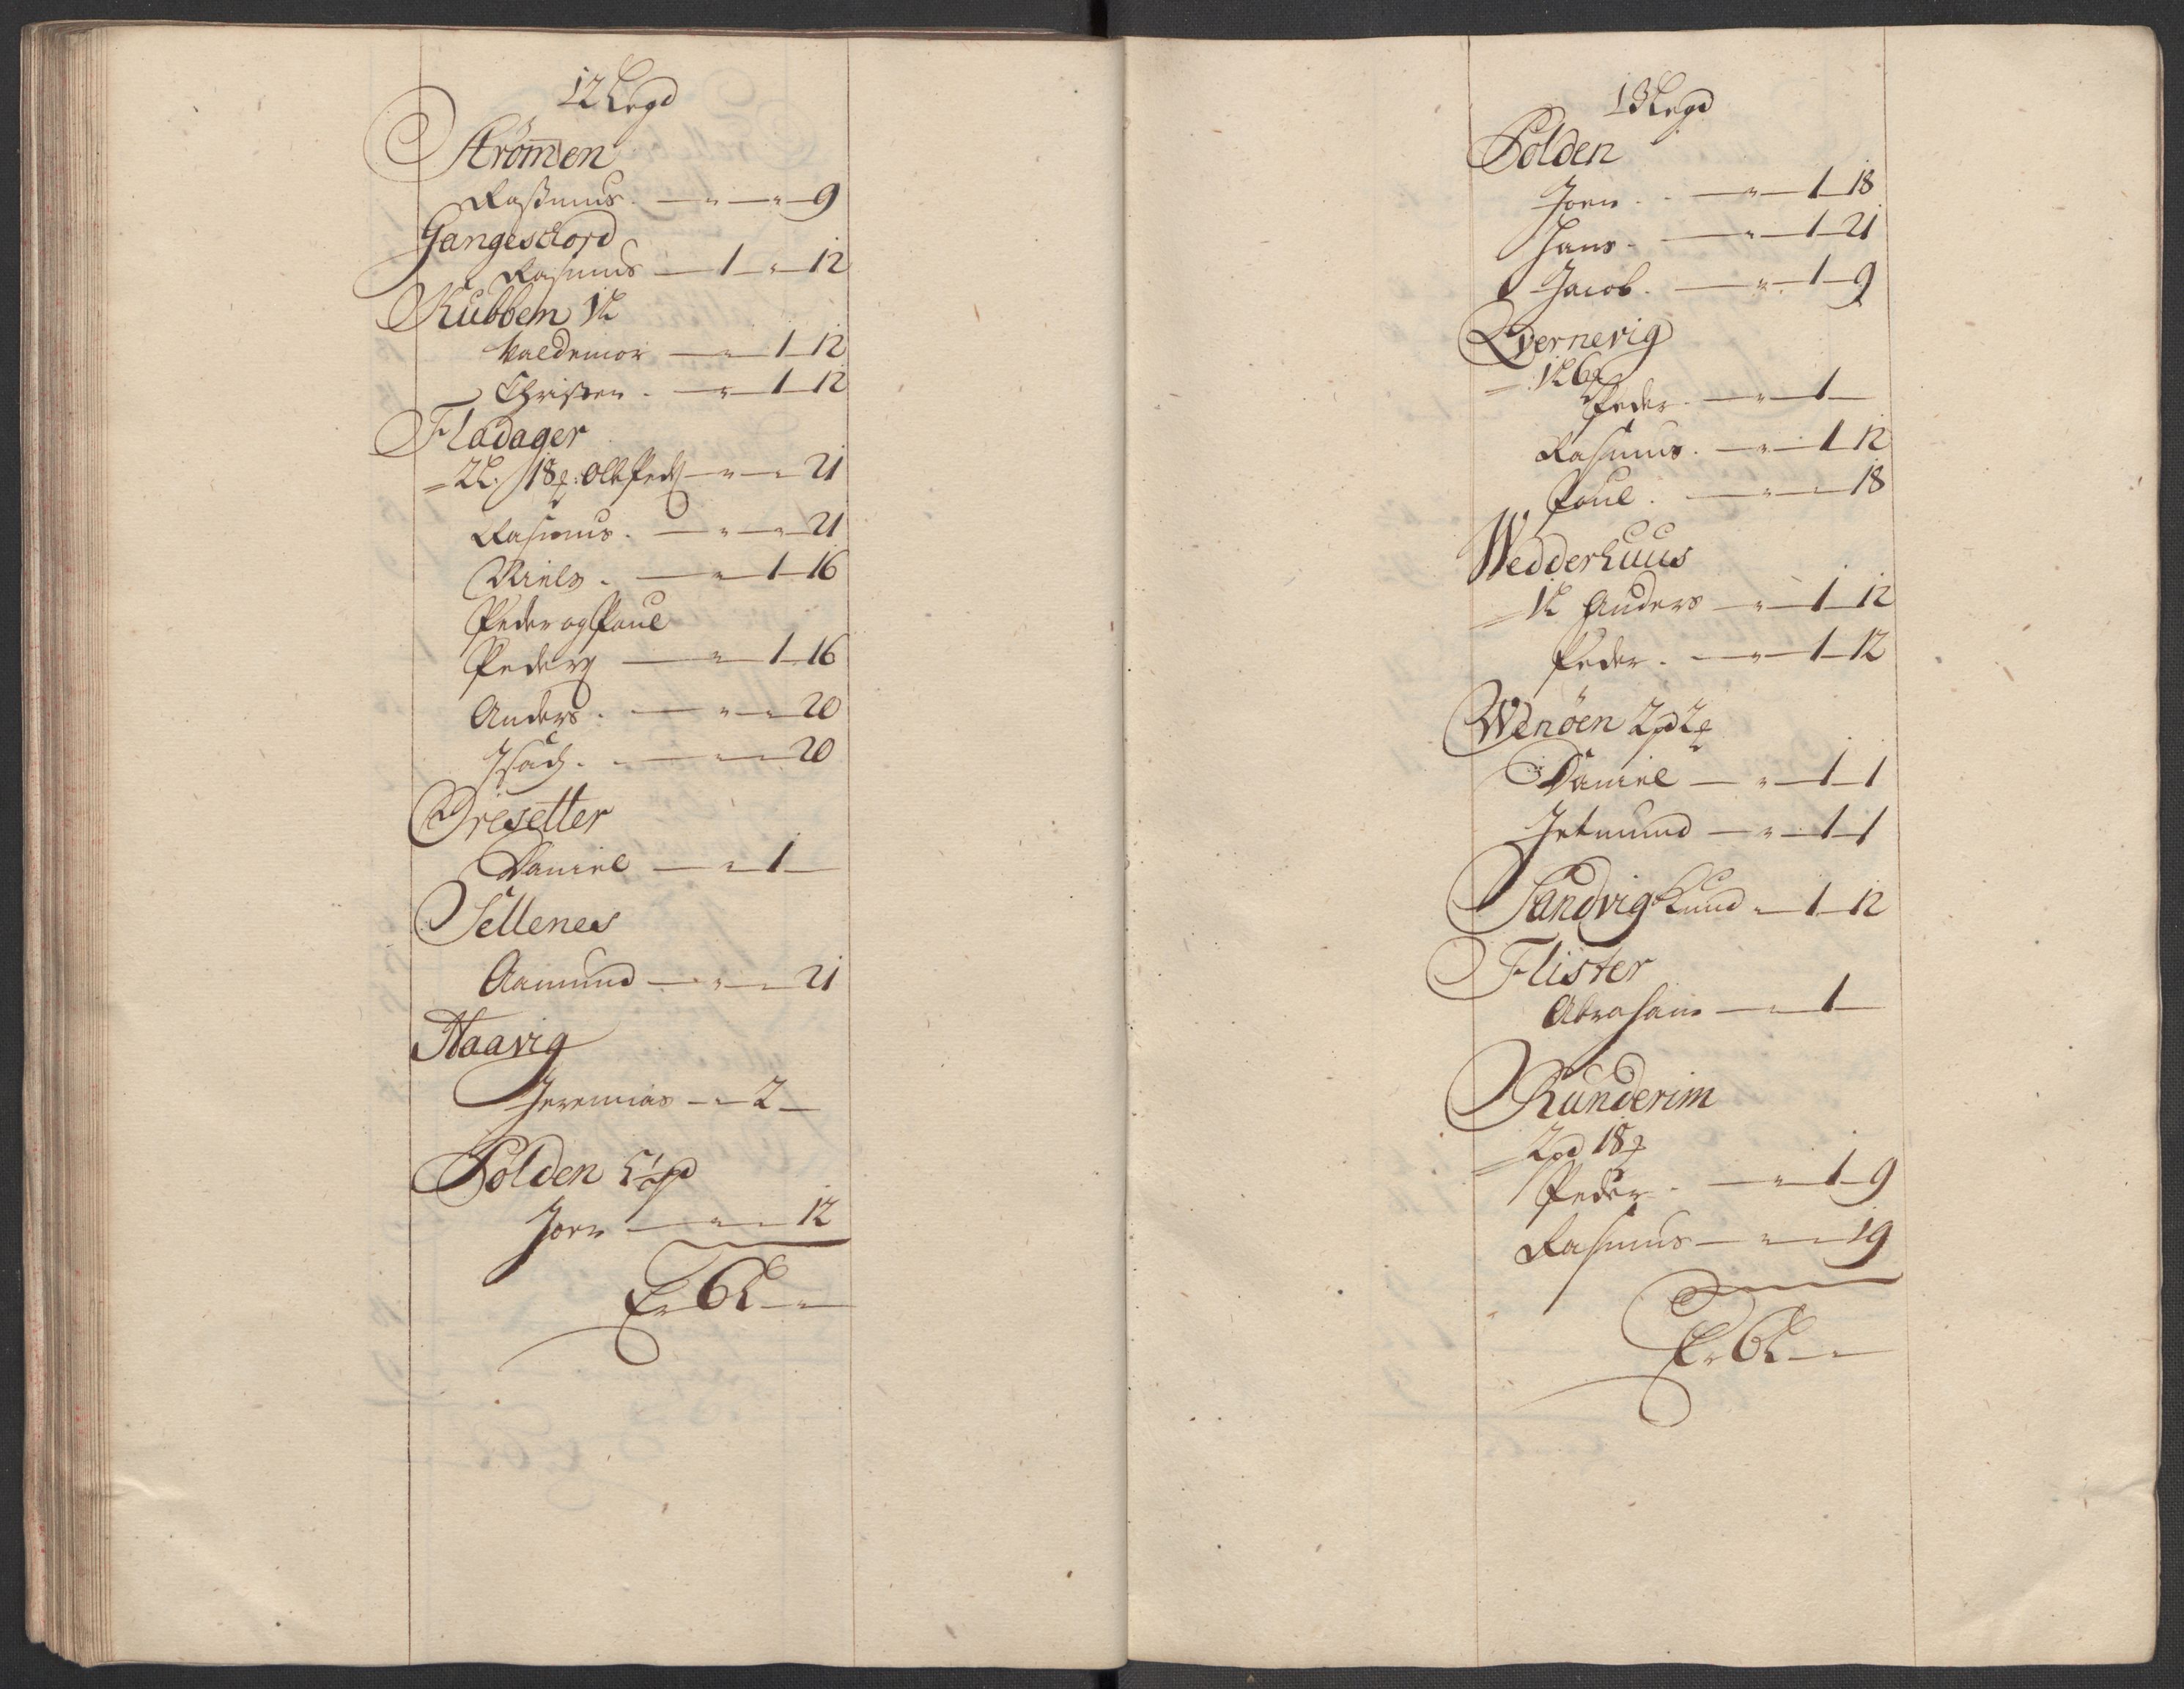 12 Legd
Strömen
Rasmus. — " — " — 9
Gangeschord
Rasmus — 1 — " — 12
Kubben 1 L
Valdemor — " — 1 — 12
Christen. — " — 1 — 12
Fladager
= 2 L. 18 : Ole Peds — " — " — 21
Rasmus. — " — " — 21
Niels. — " — 1 — 16
Peder og Poul
Peders — " — 1 — 16
Anders. — " — " — 20
Isach. — " — " — 20
Dresetter
Daniel — " — 1 —
Sellenes
Aamund — " — " — 21
Haavig
Jeremias — " — 2 —
Folden 5 1/2 pd
Joen — " — " — 12
Er 6 L — "
13 Legd
Folden
Joen. — " — 1 — 18
Hans. — " — 1 — 21
Jacob. — " — 1 — 9
Qvernevig
= 1 L 6
Peder. — " — 1 —
Rasmus. — " — 1 — 12
Poul. — " — " — 18
Wedderhuus
= 1 L Anders — " — 1 — 12
Peder. — " — 1 — 12
Wenöen 2 pd 2
Daniel — " — 1 — 1
Jetmund — " — 1 — 1
Sandvig Knud " — 1 — 12
Flister
Abraham — " — 1 —
Runderim
= 2 pd 18
Peder. — " — 1 — 9
Rasmus — " — " — 19
Er 6 L — "